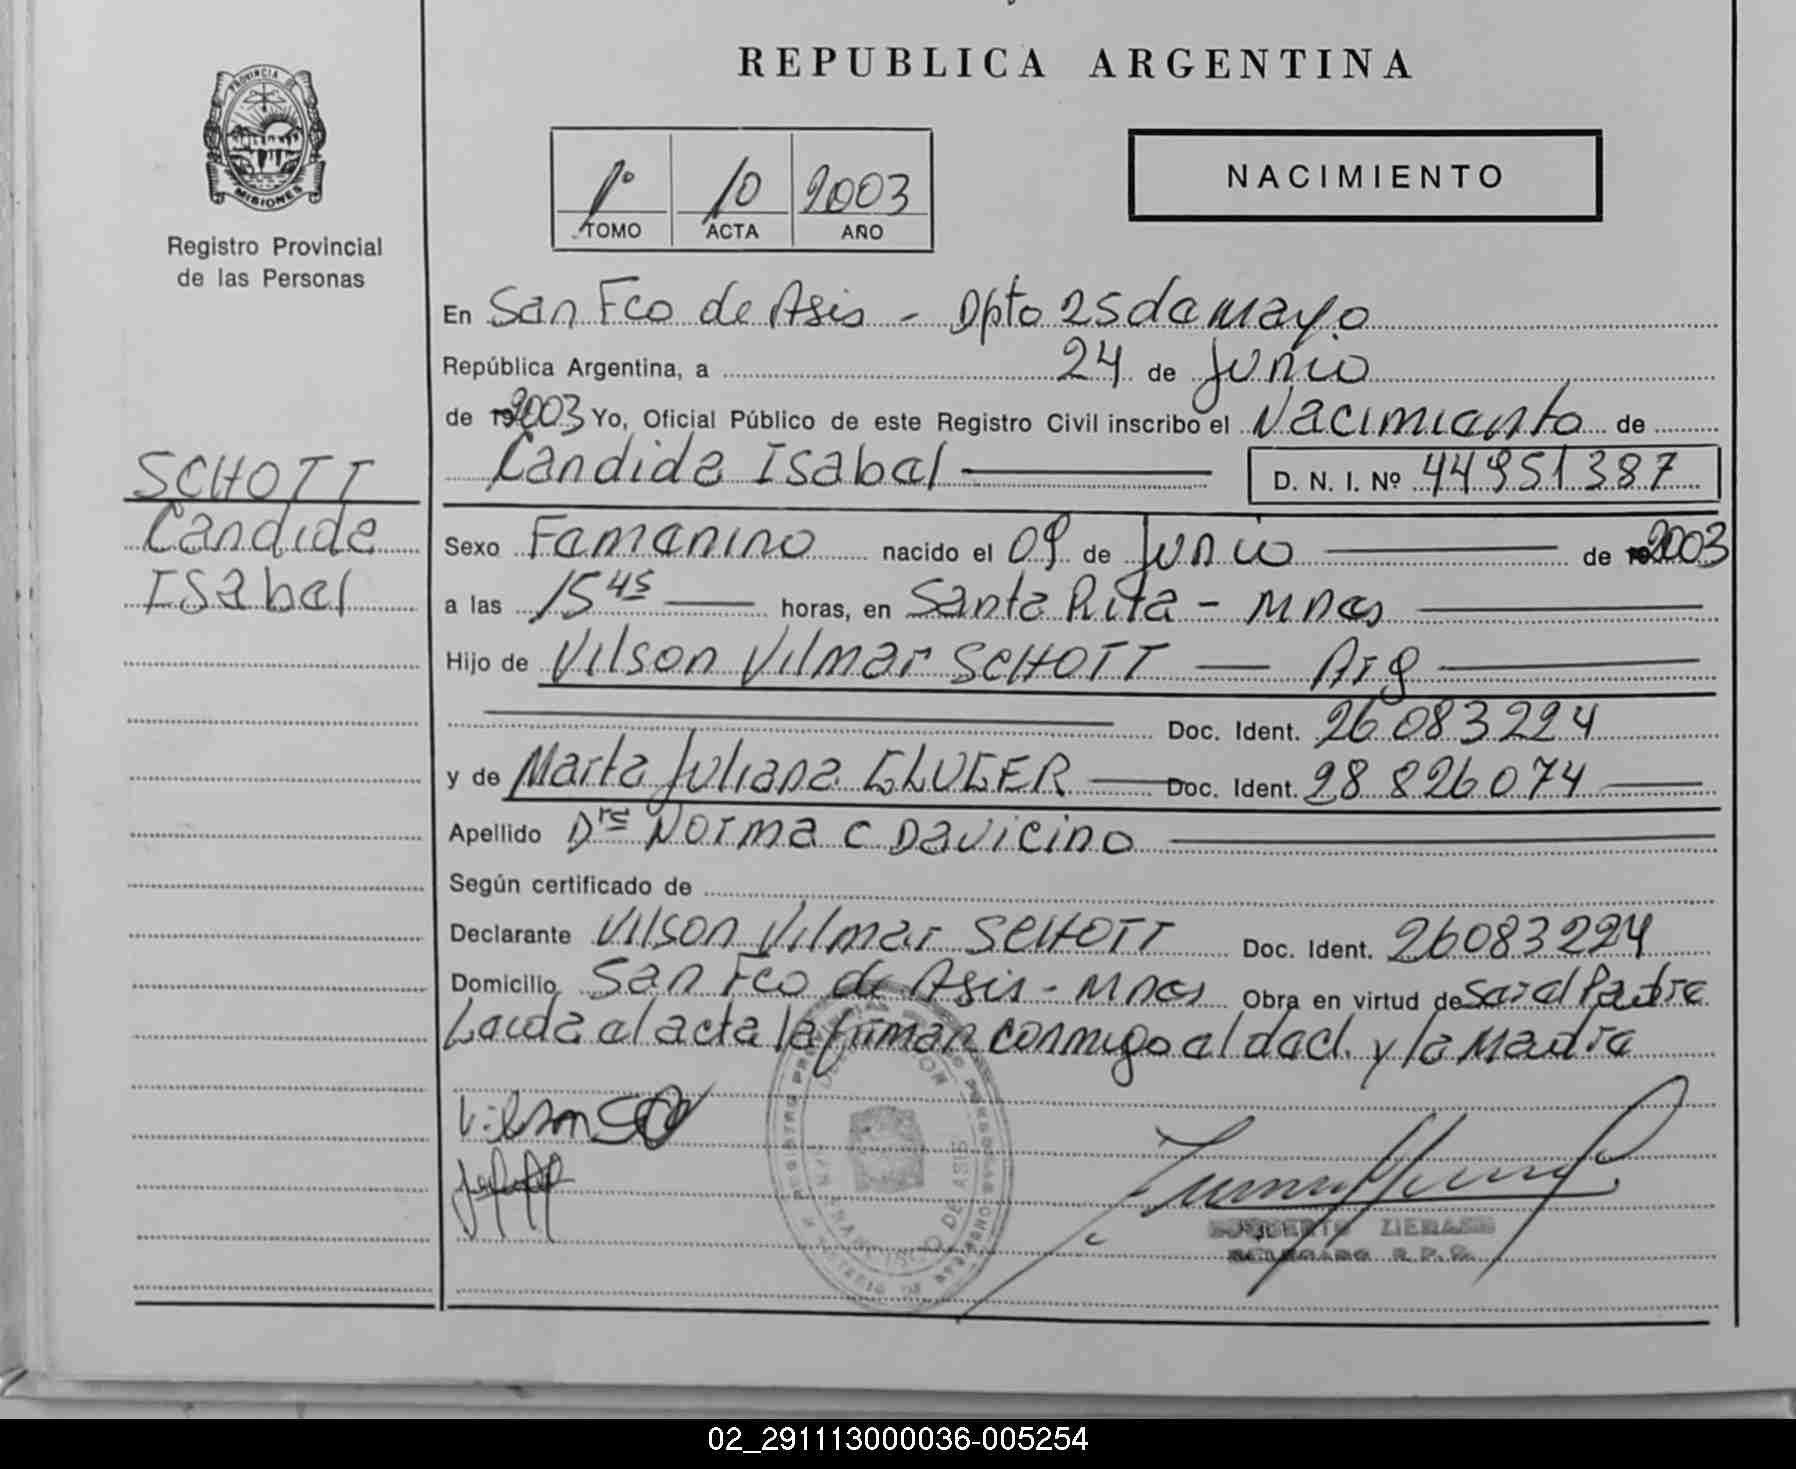 REPUBLICA ARGENTINA
PROVINCIA DE
MISIONES
Registro Provincial
de las Personas
1º 10 2003
TOMO ACTA AÑO
NACIMIENTO
En San Fco de Asis - Dpto 25 de Mayo
República Argentina, a 24 de Junio
de 2003 Yo, Oficial Público de este Registro Civil inscribo el Nacimiento de
Candida Isabel D. N. I. Nº 44951387
SCHOTT
Candida
Isabel
Sexo Femenino nacido el 09 de Junio de 2003
a las 15 45 horas, en Santa Rita - Mnes
Hijo de Vilson Vilmar SCHOTT Arg
Doc. Ident. 26 083 224
y de Marta Juliana Doc. Ident. 28 826 074
Apellido Dra Norma C Davicino
Según certificado de
Declarante Vilson Vilmar SCHOTT Doc. Ident. 26083224
Domicilio San Fco de Asis - Mnes Obra en virtud de Ser el Padre
Leida el acta la firman conmigo el decl. y la Madre
Vilson
DE ASIS
R.P.P.
02_291113000036-005254